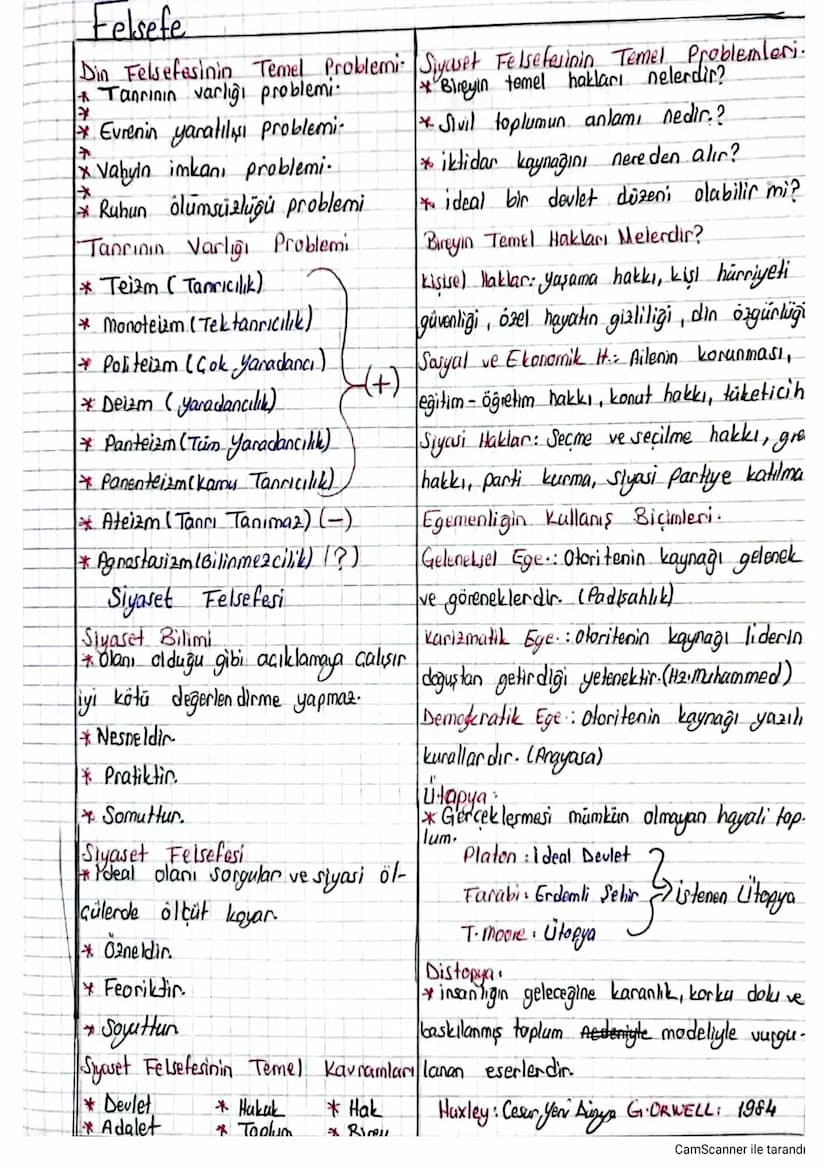 Felsefe
Din Felsefesinin Temel Problemi.
* Tanrının varlığı problemi.
*
* Evrenin yaratılışı problemi.
*
* Vahyin imkanı problemi.
*
* Ruhun ölümsüzlüğü problemi
Tanrının Varlığı Problemi
* Teizm (Tanrıcılık)
* Monoteizm (Tektanrıcılık)
* Politeizm (Çok yaradancı)
* Deizm (yaradancılık)
* Panteizm (Tüm Yaradancılık)
* Panenteizm (Kamu Tanrıcılık)
(+)
* Ateizm (Tanrı Tanımaz) (-)
* Agnostasizm (Bilinmezcilik) (?)
Siyaset Felsefesi
Siyaset Bilimi
* Olanı olduğu gibi açıklamaya çalışır
iyi kötü değerlendirme yapmaz.
* Nesneldir.
* Pratiktir.
* Somuttur.
Siyaset Felsefesi
* İdeal olanı sorgular ve siyasi öl-
çülerde ölçüt koyar.
* Özneldir.
* Feoriktir.
* Soyuttur
Siyaset Felsefesinin Temel Kavramları
* Devlet * Hukuk * Hak
* Adalet * Toplum * Birey
Siyaset Felsefesinin Temel Problemleri.
* Bireyin temel hakları nelerdir?
* Sivil toplumun anlamı nedir?
* iktidar kaynağını nereden alır?
* ideal bir devlet düzeni olabilir mi?
Bireyin Temel Hakları Nelerdir?
Kişisel Haklar: yaşama hakkı, kişi hürriyeti
güvenliği, özel hayatın gizliliği, din özgürlüğü
Sosyal ve Ekonomik H.: Ailenin korunması,
eğitim - öğretim hakkı, konut hakkı, tüketicih
Siyasi Haklar: Seçme ve seçilme hakkı, gre
hakkı, parti kurma, siyasi Partiye katılma
Egemenliğin Kullanış Biçimleri.
Geleneksel Ege.: Otoritenin kaynağı gelenek
ve göreneklerdir. (Padişahlık)
Karizmatik Ege.: Otoritenin kaynağı liderin
doğuştan getirdiği yetenektir. (Hz. Muhammed)
Demokratik Ege.: Otoritenin kaynağı yazılı
kurallardır. (Anayasa)
Ütopya:
* Gerçekleşmesi mümkün olmayan hayali top-
lum.
Platon: İdeal Devlet
Farabi: Erdemli Şehir
T. Moore: Ütopya
istenen Ütopya
Distopya:
* insanlığın geleceğine karanlık, korku dolu ve
baskılanmış toplum modeliyle vurgu-
lanan eserlerdir.
Huxley: Cesur, Yeni Dünya G. ORWELL: 1984
CamScanner ile tarandı